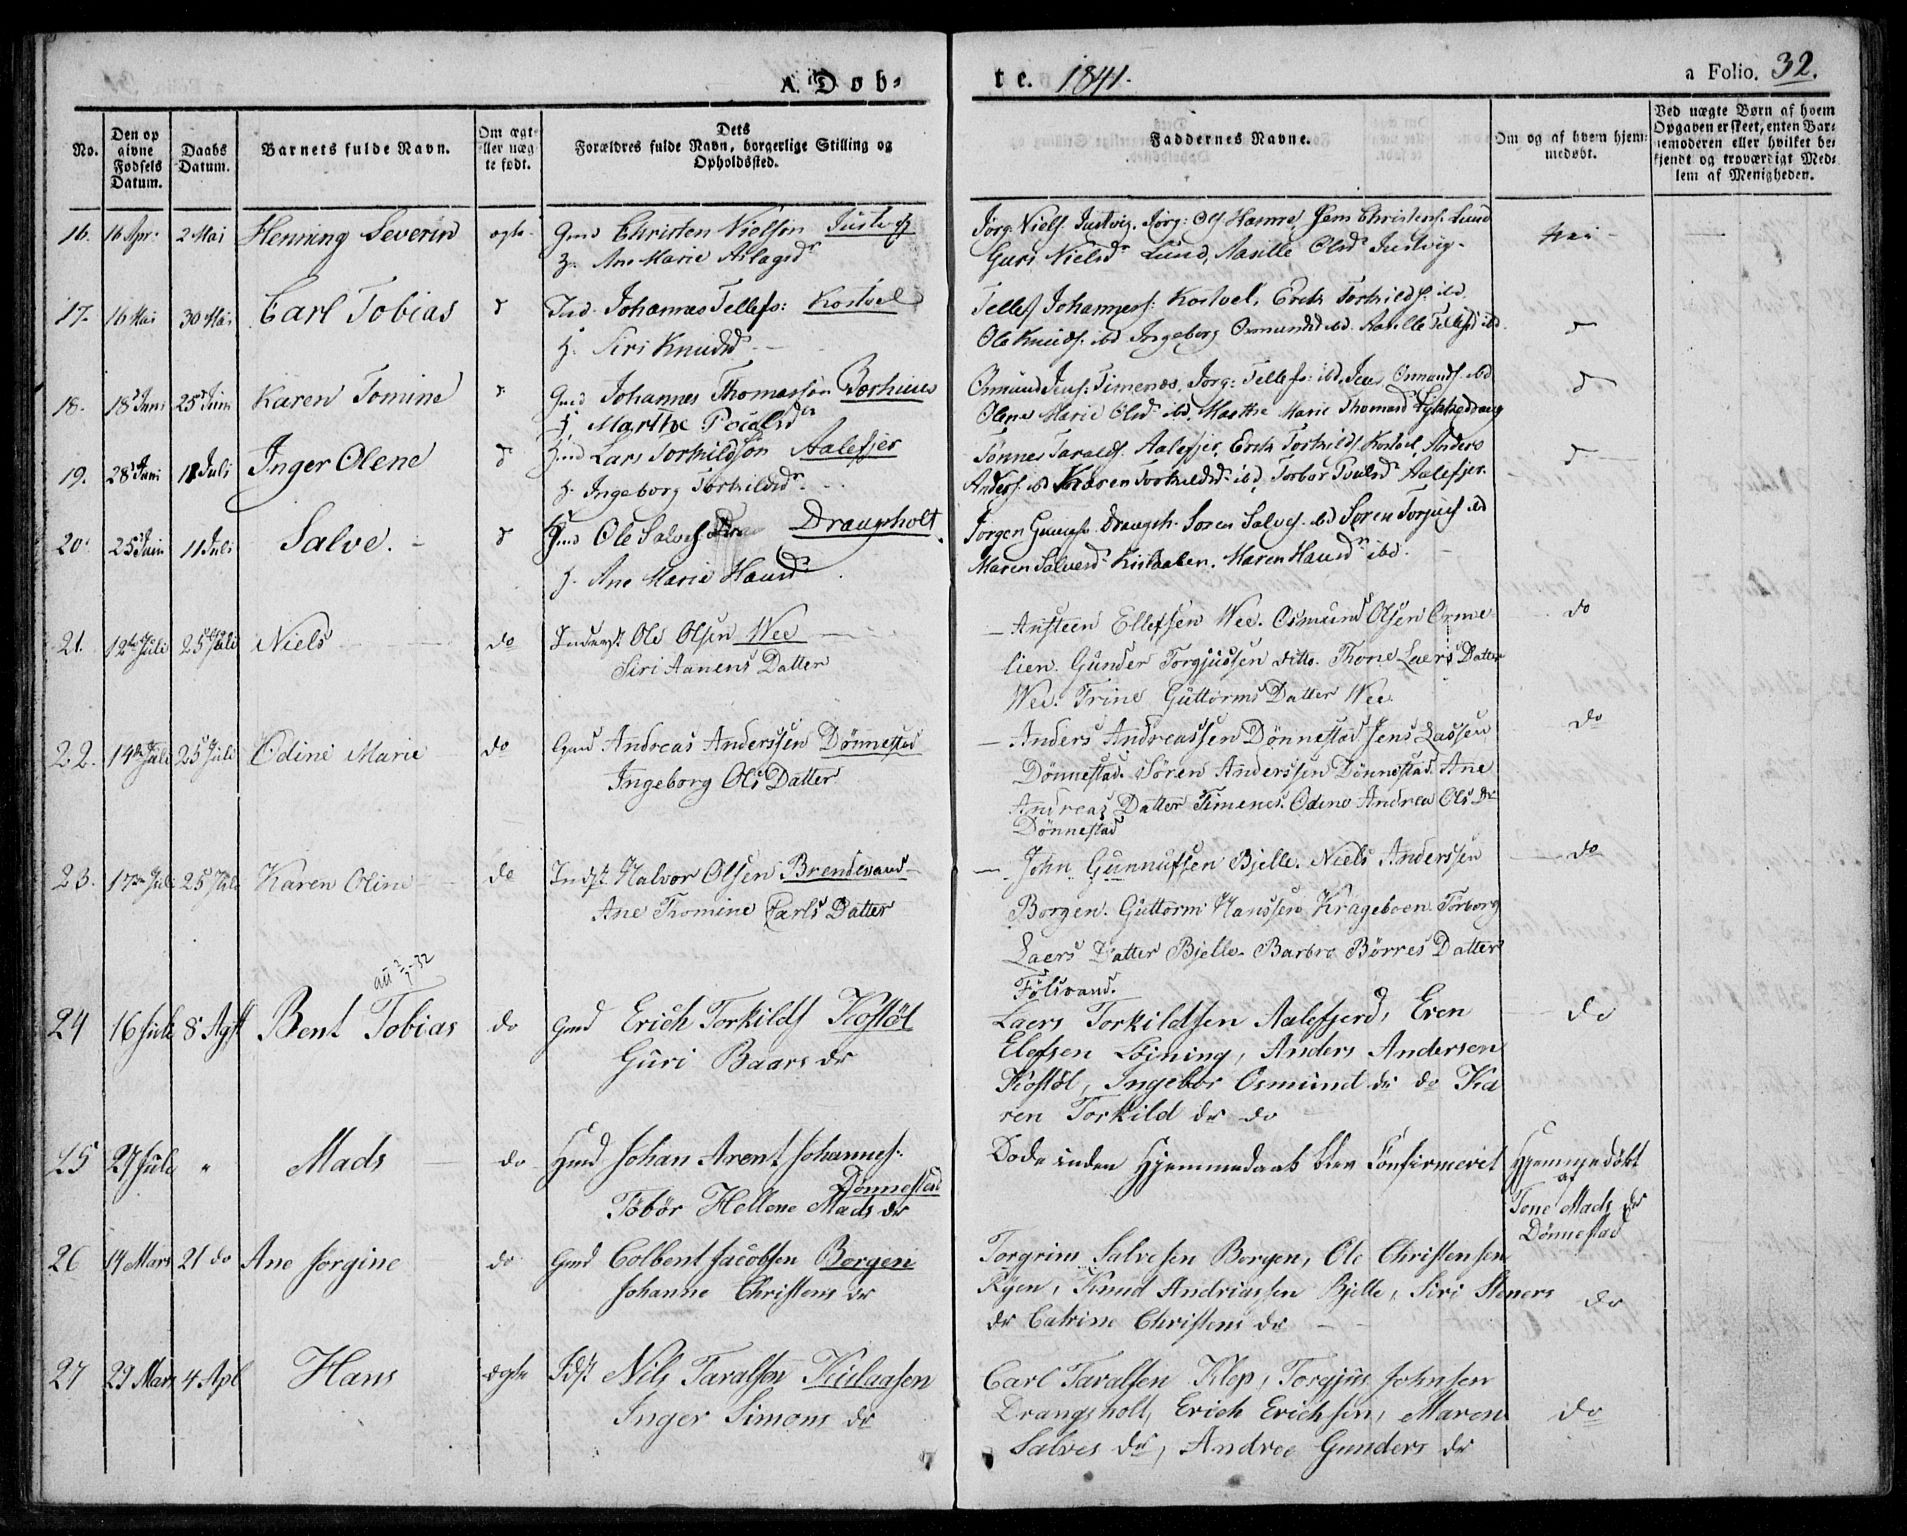 A. Døb-
te. 1841.
a Folio. 32.
No.
Den opgivne Fødsels Datum.
Daabs Datum.
Barnets fulde Navn.
Om ægte eller uægte født.
Dets Forældres fulde Navn, borgerlige Stilling og Opholdssted.
Faddernes Navne.
Om og af hvem hjemmedøbt.
Ved uægte Børn af hvem Opgaven er skeet, enten Barnemoderen eller hvilket bekjendt og troværdigt Medlem af Menigheden.
16. 16 Apr: 2 Mai Henning Severin ægte. Gmd Christen Nielsen Justvig
H. Ane Marie Aslagsdr
Jørg: Niels. Justvig. Jørg: Ols Hamre, Jens Christens. Lund
Guri Nielsdr Lund, Aaselle Olsdr Justvig.
Nei
17. 16 Mai 30 Mai Carl Tobias d Ind. Johannes Tellefs: Kostøel
H. Siri Knudsd.
Tellef Johanness: Kostøel, Erik Torkilds. ibd
Ole Knuds. ibd Ingeborg Osmundsd ibd. Aaselle Tellefsd ibd.
d
18. 18 Juni 25 Juni Karen Tomine d Gmd Johannes Thomassøn
H. Marthe Poulsd
Osmund Jens: Timenes, Jørg: Tellefs: ibd, Jens Osmunds. ibd
Olene Marie Olsd ibd. Marthe Marie Thomasd Lykkedrang
d
19. 28 Juni 11 Juli Inger Olene d Lars Torkildsøn Aalefjer
H. Ingeborg Torkildsdr
Tønnes Taralds. Aalefjer, Erik Torkilds. Kostøel, Anders
Anders. ibd Karen Torkildsd ibd, Torbor Poulsdr Aalefjer.
d
20. 25 Juni 11 Juli Salve. d Gmd Ole Salves. Draugsholt
H. Ane Marie Hansdr
Jørgen Draugsh. Søren Salves. ibd Søren Torjus. ibd
Maren Salvesd Kislaasen. Maren Hansdr ibd.
21. 12te Juli 25de Juli Niels do Inderst Ole Olsen Wee
Siri Aanens Datter
Austeen Ellefsen Wee. Osmund Olsen Orme-
lien. Gunder Torgjussen ditto. Thone Laers Datter
Wee. Trine Guttorms Datter Wee.
do
22. 14de Juli 25 Juli Odine Marie do Gmd Andreas Anderssen Dønnestad
Ingeborg Ols Datter
Anders Andreassen Dønnestad Jens Lassen
Dønnestad. Søren Anderssen Dønnestad. Ane
Andreas Datter Timenes. Odine Andrea Ols Dr
Dønnestad
do
23. 17de Juli 25 Juli Karen Oline do Indst. Halvor Olsen Brendevand
Ane Thomine Carls Datter
John Gunnufsen Bjelle. Niels Anderssen
Borgen. Guttorm Hanssen Krageboen. Torborg
Laers Datter Bjelle. Barbro Børres Datter
Følsvand.
do
att 2/7-32
24 16 Juli 8 Agst Bent Tobias do Gmd Erich Torkilds Kostøl
Guri Baars dr
Laers Torkildsen Aalefjerd, Even
Elefsen Løining, Anders Andersen
Kostøl, Ingebor Osmund dr do Ka
ren Torkild dr do
do
25 27 Juli " Mads do Hmd Johan Arent Johannes:
Dønnestad
Tobør Hellene Mads dr
Døde inden Hjemmedaab blev Confirmeret
Hjemmedøbt
af
Tone Mads dr
Dønnestad
26 14 Mars 21 do Ane Jorgine do Gmd Colbent Jacobsen Borgen
Johanne Christens dr
Torgrim Salvesen Borgen, Ole Christensen
Rÿen, Knud Andriassen Bjelle, Siri Steners
dr Catrine Christens dr
do
27 29 Mars 4 Apl Hans ægte Idst Nils Taralsen Kislaasen
Inger Simons dr
Carl Taralsen Klep, Torgjus Johnsen
Drangsholt, Erich Erichsen, Maren
Salves dr, Andrea Gunders dr
do